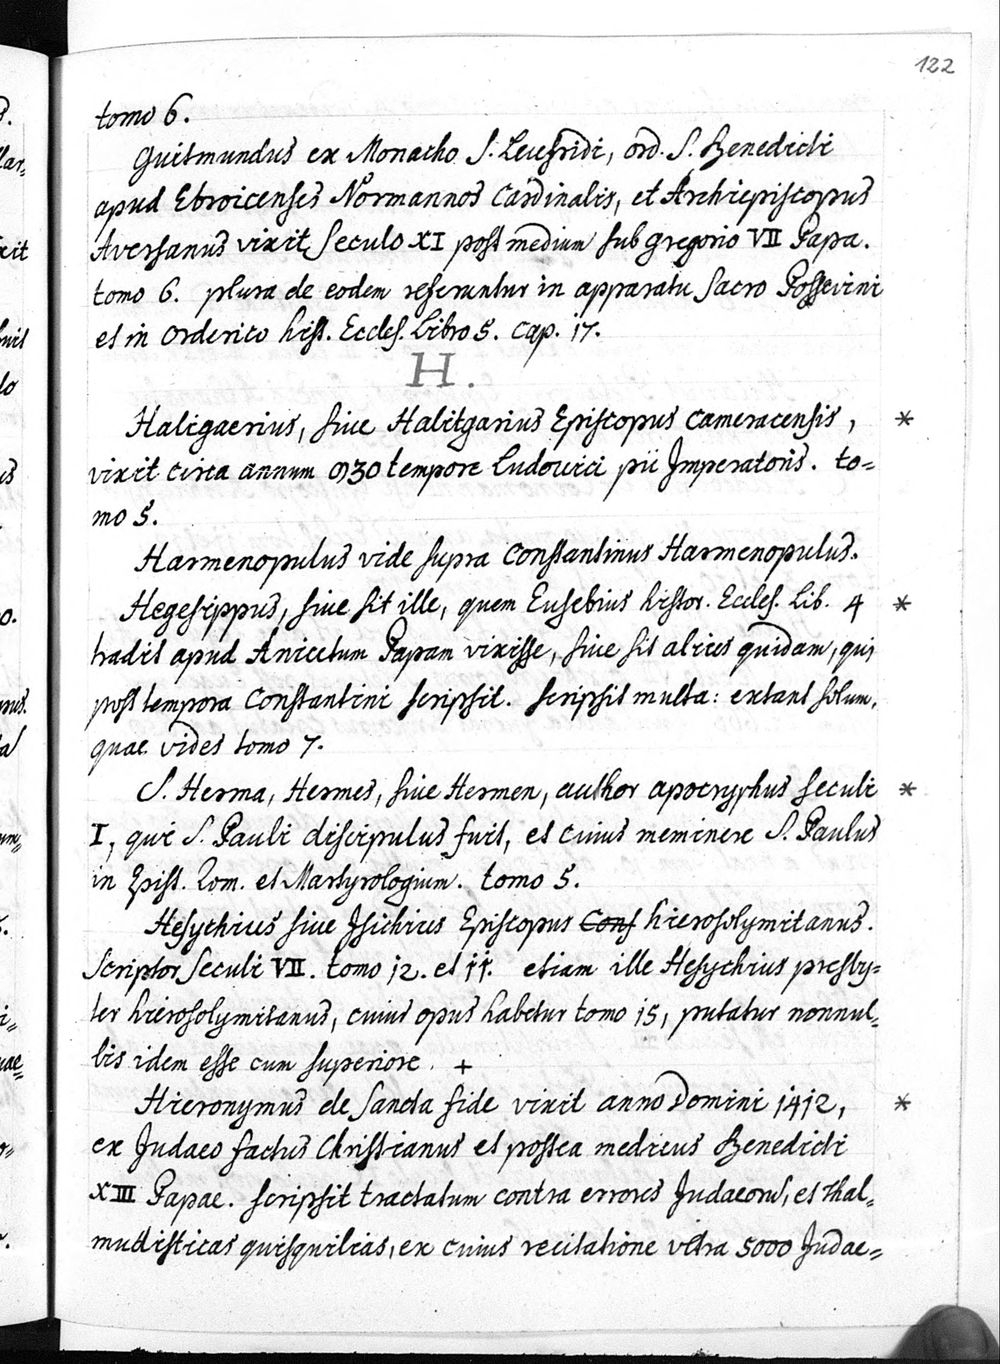 122
tomo 6.
Guitmundus ex Monacho S. Leufridi, ord. S. Benedicti
apud Ebroicenses Normannos Cardinalis, et Archiepiscopus
Aversanus vixit seculo XI post medium sub gregorio VII Papa.
tomo 6. plura de eodem referuntur in apparatu sacro Possevini
et in orderico hist. Eccles. Libro 5. cap. 17.
H.
Haligaerius, sive Halitgarius Episcopus cameracensis, *
vixit circa annum 930 tempore ludovici pii Imperatoris. to=
mo 5.
Harmenopulus vide supra constantinus Harmenopulus.
Hegesippus, sive sit ille, quem Eusebius histor. Eccles. Lib. 4 *
tradit apud Anicetum Papam vixisse, sive sit alius quidam, qui
post tempora Constantini scripsit. scripsit multa: extant solum,
quae vides tomo 7.
S. Herma, Hermes, sive Hermen, author apocryphus seculi *
I, qui S. Pauli discipulus fuit, et cuius meminere S. Paulus
in Epist. Rom. et Martyrologium. tomo 5.
Hesychius sive Isichius Episcopus Cons hierosolymitanus.
Scriptor seculi VII. tomo 12. et 11. etiam ille Hesychius presby=
ter hierosolymitanus, cuius opus habetur tomo 15, putatur nonnul=
lis idem esse cum superiore. +
Hieronymus de Sancta fide vixit anno Domini 1412, *
ex Judaeo factus Christianus et postea medicus Benedicti
XIII Papae. scripsit tractatum contra errores Judaeorum, et Thal=
mudisticas quisquilias, ex cuius recitatione ultra 5000 Judae=